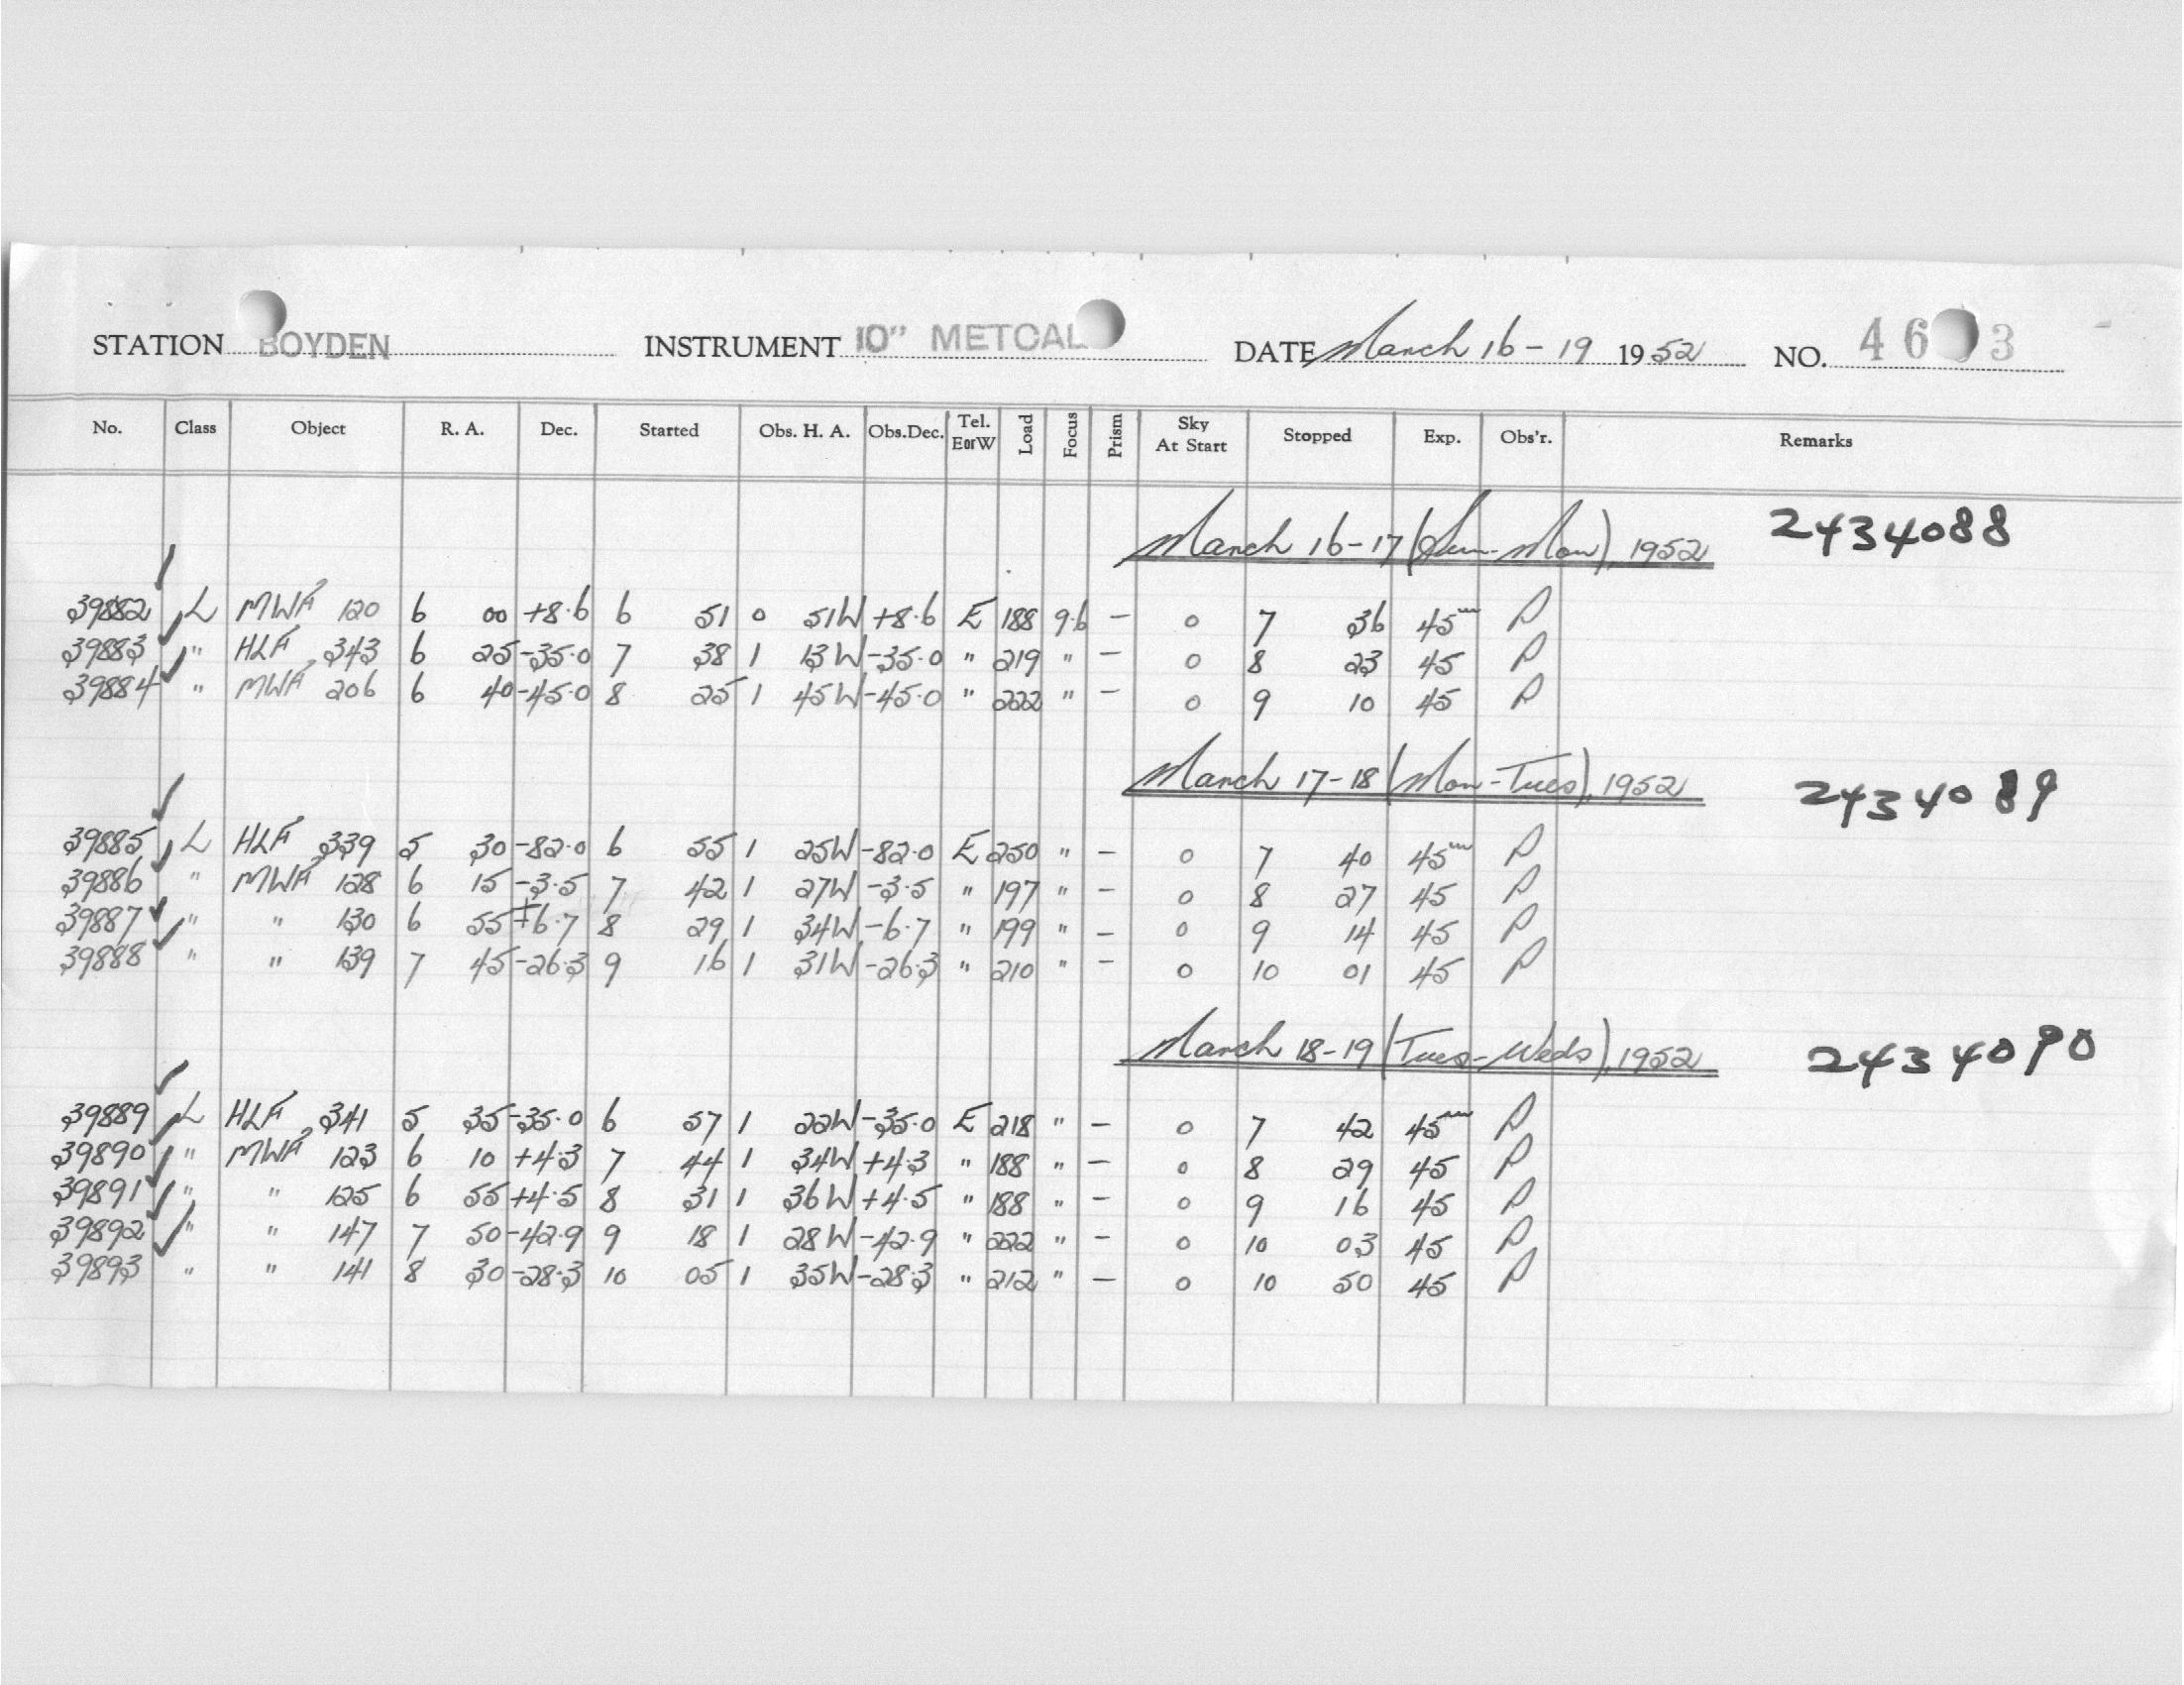 STATION BOYDEN INSTRUMENT 10" METCAL DATE March 16-19 1952 NO. 46 3
No. Class Object R. A. Dec. Started Obs. H. A. Obs.Dec. Tel. EorW Load Focus Prism Sky At Start Stopped Exp. Obs'r. Remarks
March 16-17 (Sun-Mon), 1952 2434088
39882 L MWF 120 6 00 +8.6 6 51 0 51W +8.6 E 188 9.6 — 0 7 36 45m P
39883 " HLF 343 6 25 -35.0 7 38 1 13W -35.0 " 219 " — 0 8 23 45 P
39884 " MWF 206 6 40 -45.0 8 25 1 45W -45.0 " 222 " — 0 9 10 45 P
March 17-18 (Mon-Tues), 1952 2434089
39885 L HLF 339 5 30 -82.0 6 55 1 25W -82.0 E 250 " — 0 7 40 45m P
39886 " MWF 128 6 15 -3.5 7 42 1 27W -3.5 " 197 " — 0 8 27 45 P
39887 " " 130 6 55 +6.7 8 29 1 34W -6.7 " 199 " — 0 9 14 45 P
39888 " " 139 7 45 -26.3 9 16 1 31W -26.3 " 210 " — 0 10 01 45 P
March 18-19 (Tues-Weds), 1952 2434090
39889 L HLF 341 5 35 -35.0 6 57 1 22W -35.0 E 218 " — 0 7 42 45m P
39890 " MWF 123 6 10 +4.3 7 44 1 34W +4.3 " 188 " — 0 8 29 45 P
39891 " " 125 6 55 +4.5 8 31 1 36W +4.5 " 188 " — 0 9 16 45 P
39892 " " 147 7 50 -42.9 9 18 1 28W -42.9 " 222 " — 0 10 03 45 P
39893 " " 141 8 30 -28.3 10 05 1 35W -28.3 " 212 " — 0 10 50 45 P